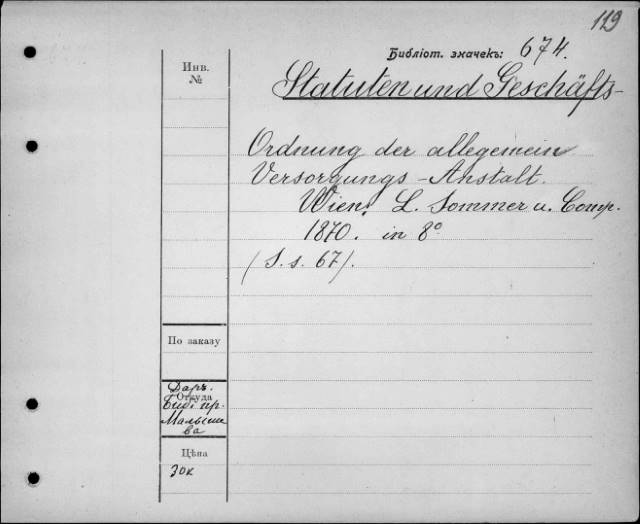 119
Библіот. значекъ: 674.
Инв.
№
Statuten und Geschäfts-
Ordnung der allegemein
Versorgungs-Anstalt.
Wien, L. Sommer u. Comp.
1870. in 8°
(S. s. 67).
По заказу
Даръ.
Откуда
Библ. пр.
Малыше
ва
Цѣна
30к